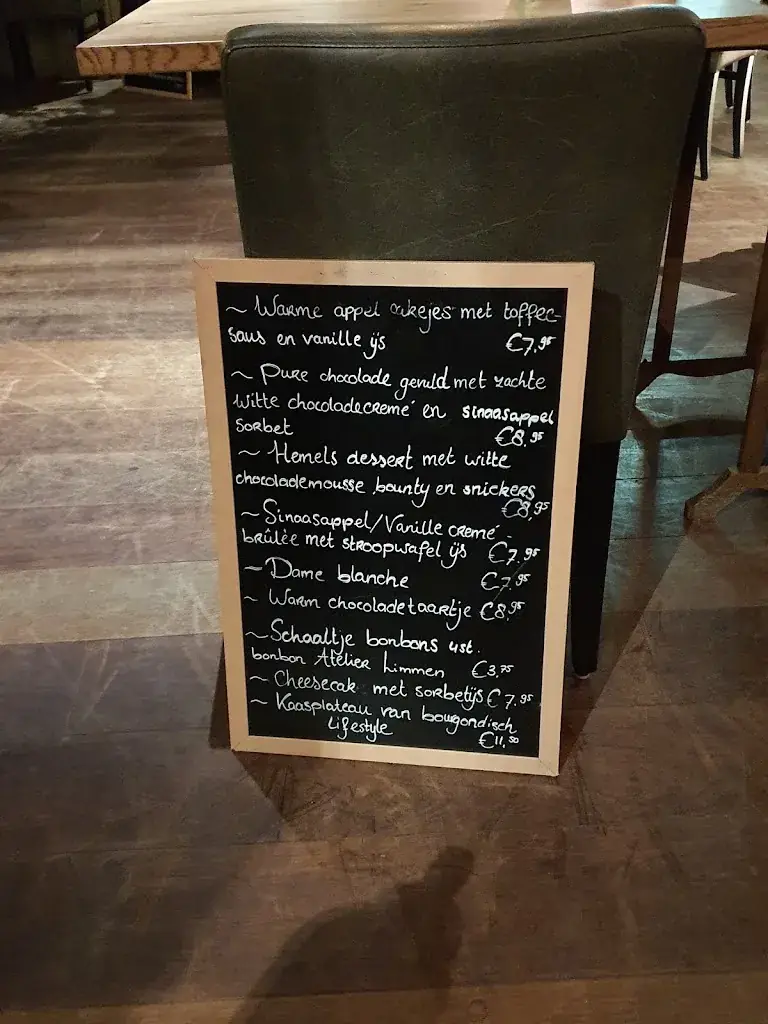 ~ Warme appel cakejes met toffee-
saus en vanille ijs €7,95
~ Pure chocolade gevuld met zachte
witte chocoladecremé en sinaasappel
sorbet €8,95
~ Hemels dessert met witte
chocolademousse, bounty en snickers
€8,95
~ Sinaasappel/Vanille cremé-
brûlée met stroopwafel ijs €7,95
~ Dame blanche €7,95
~ Warm chocoladetaartje €8,95
~ Schaaltje bonbons ust.
bonbon Atelier Limmen €3,75
~ Cheesecak met sorbetijs €7,95
~ Kaasplateau van bourgondisch
lifestyle €11,50